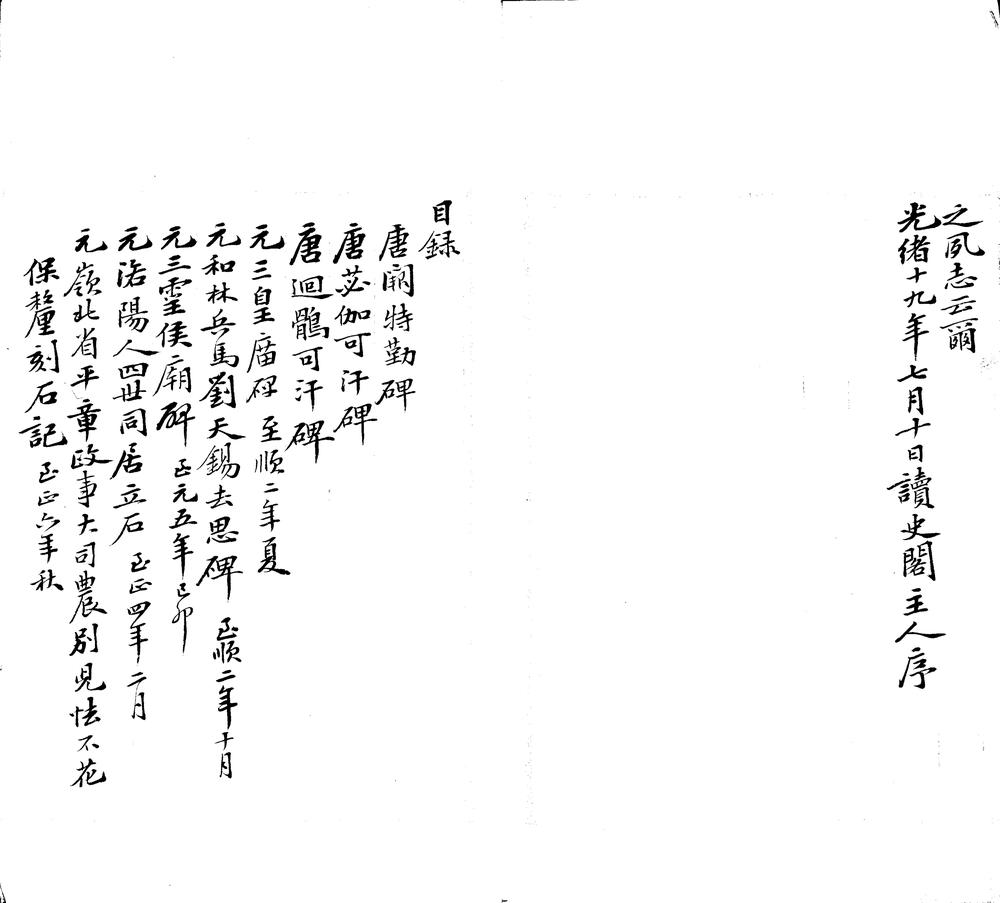 之夙志云爾
光緒十九年七月十日讀史閣主人序
目録
唐闕特勤碑
唐苾伽可汗碑
唐迴鶻可汗碑
元三皇廟碑 至順二年夏
元和林兵馬劉天錫去思碑 至順二年十月
元三靈侯廟碑 至元五年己卯
元洛陽人四世同居立石 至正四年二月
元嶺北省平章政事大司農別児怯不花
保釐刻石記 至正六年秋